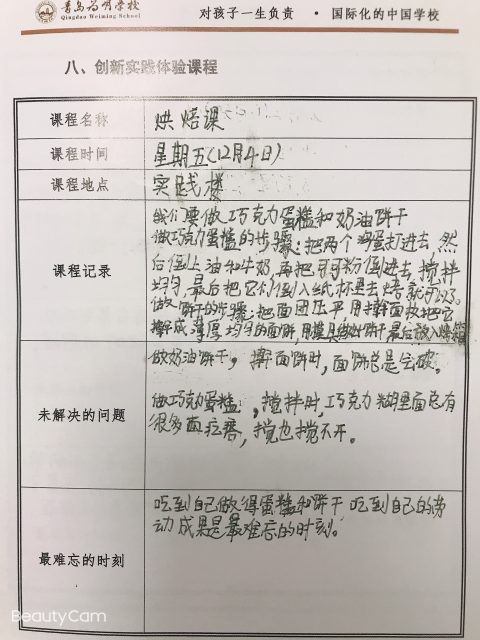 青岛为明学校
Qingdao Weiming School
对孩子一生负责 · 国际化的中国学校
八、创新实践体验课程
课程名称
烘焙课
课程时间
星期五(12月4日)
课程地点
实践楼
课程记录
我们要做巧克力蛋糕和奶油饼干
做巧克力蛋糕的步骤:把两个鸡蛋打进去 然
后倒上油和牛奶,再把可可粉倒进去 搅拌
均匀,最后把它们倒入纸杯里去烤就可以了。
做饼干的步骤:把面团压平 用擀面杖把它
擀成薄厚均匀的面饼,用模具做出饼干 最后放入烤箱
未解决的问题
做奶油饼干,擀面饼时,面饼总是会破。
做巧克力蛋糕,搅拌时,巧克力糊里面总有
很多面疙瘩,搅也搅不开。
最难忘的时刻
吃到自己做得蛋糕和饼干 吃到自己的劳
动成果是最难忘的时刻。
BeautyCam